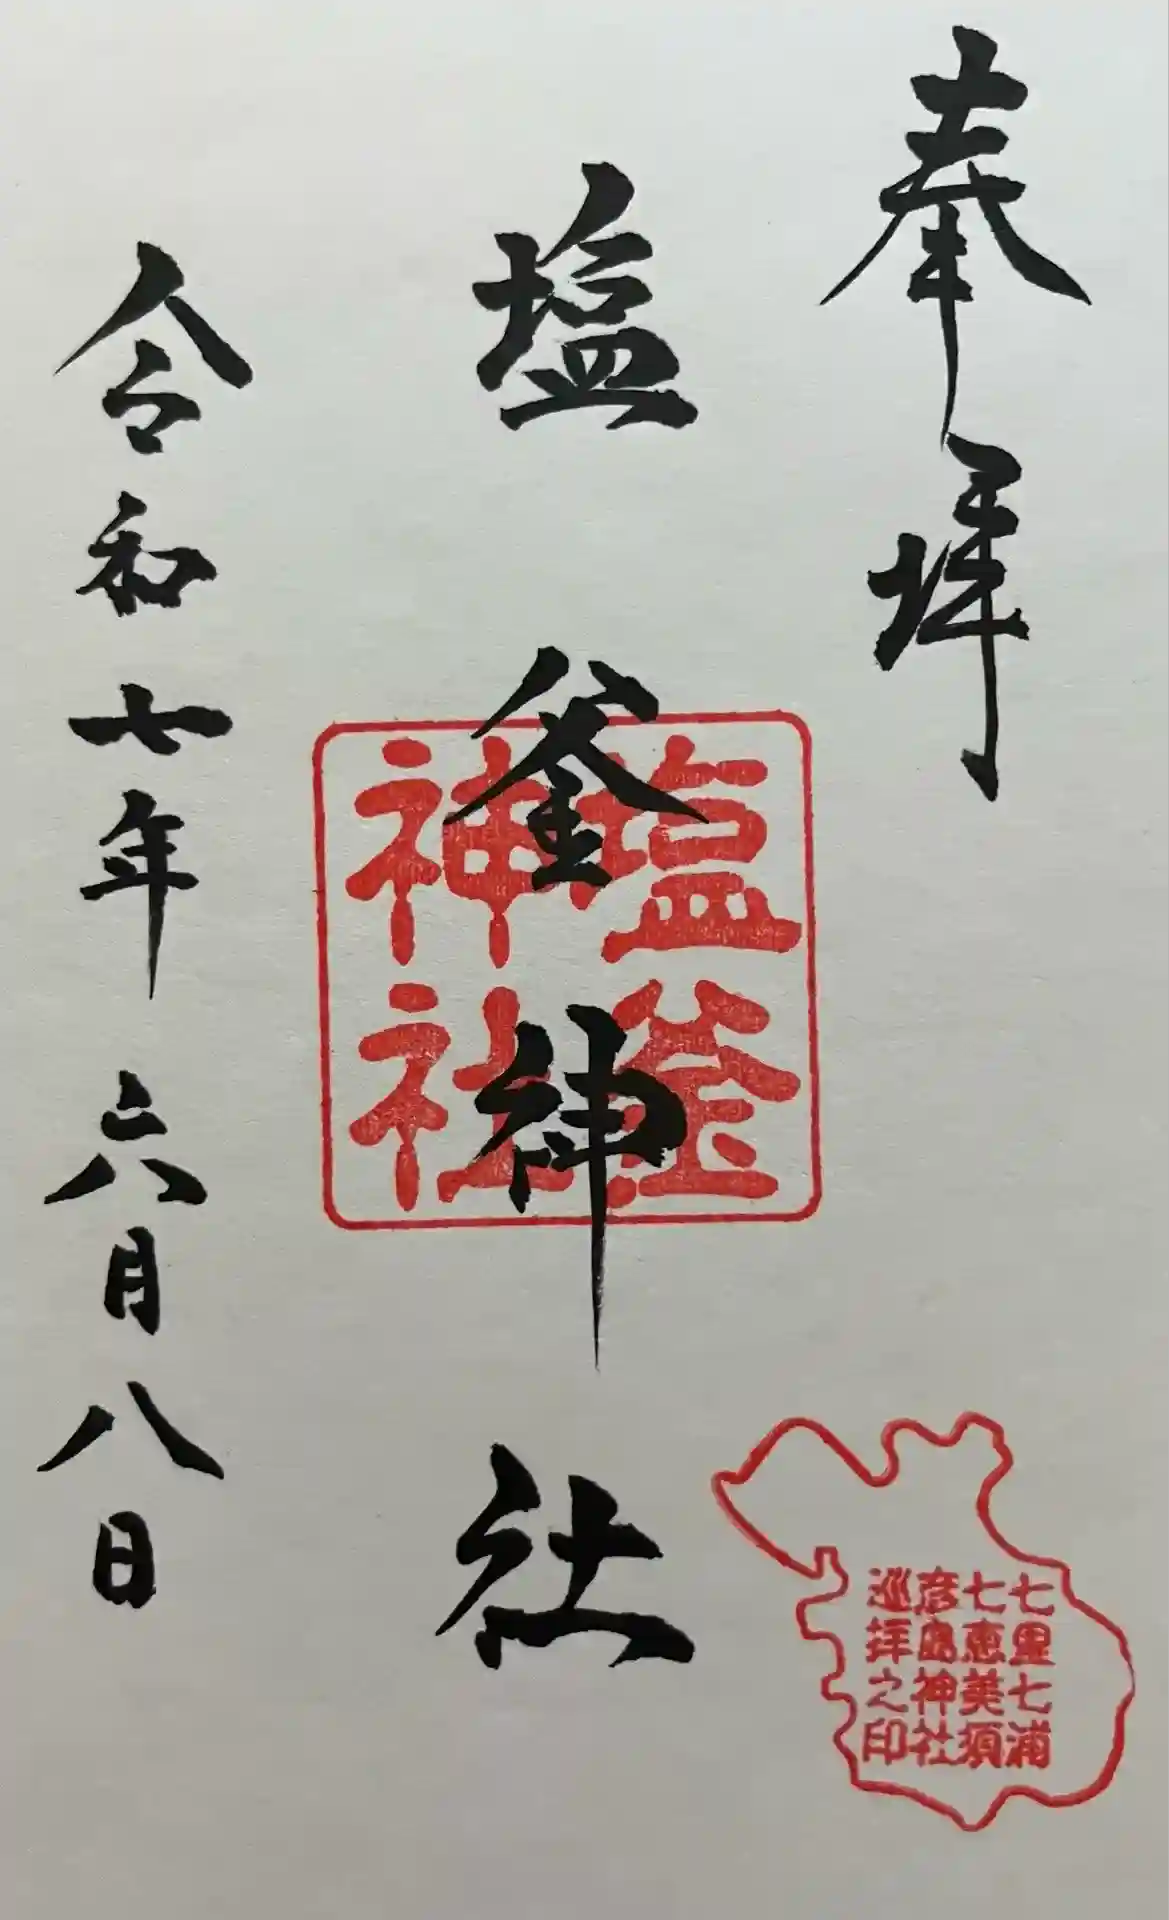 奉拝
塩釜神社
塩釜
神社
令和七年六月八日
七里七浦
七恵美須
彦島神社
巡拝之印